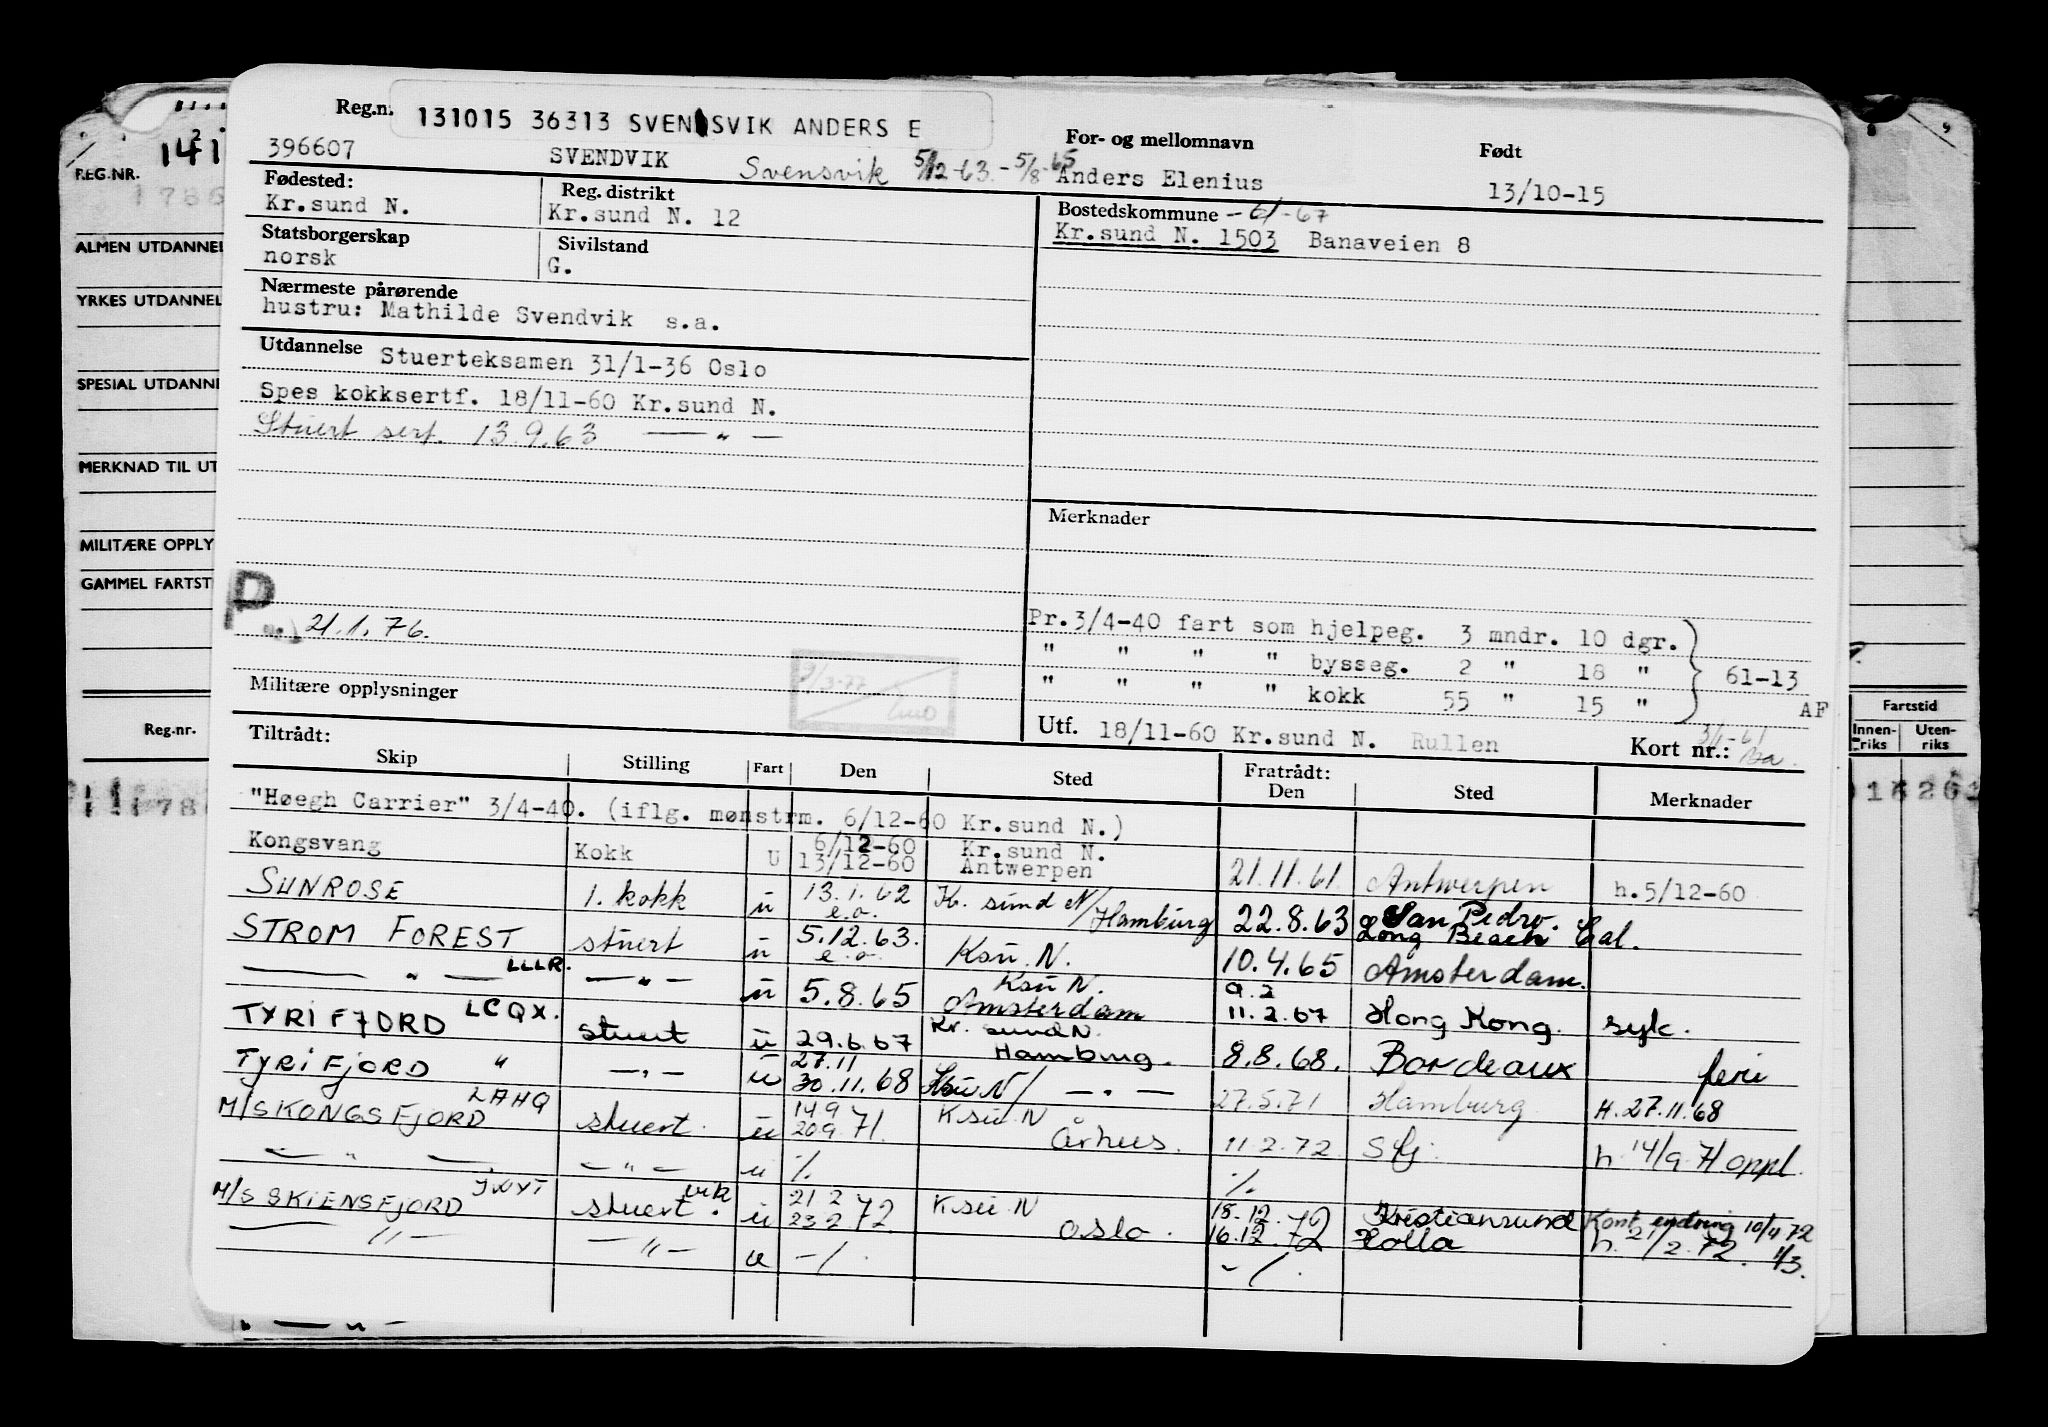 Reg.n. 131015 36313 SVENSVIK ANDERS E
396607 SVENDVIK Svensvik 5/12-63. - 5/8-65
For- og mellomnavn Født
Anders Elenius 13/10-15
Fødested: Reg. distrikt
Kr.sund N. Kr.sund N. 12
Statsborgerskap Sivilstand
norsk G.
Bostedskommune -6/-67
Kr.sund N. 1503 Banaveien 8
Nærmeste pårørende
hustru: Mathilde Svendvik s.a.
Utdannelse Stuerteksamen 31/1-36 Oslo
Spes kokksertf. 18/11-60 Kr.sund N.
Stuert sert. 13.9.63 — " —
Merknader
P
21.1.76.
Pr. 3/4-40 fart som hjelpeg. 3 mndr. 10 dgr.
" " " " bysseg. 2 " 18 "
" " " " kokk 55 " 15 "
61-13
AF
Militære opplysninger
Utf. 18/11-60 Kr.sund N. Rullen Kort nr.:
Tiltrådt: Fratrådt:
Skip Stilling Fart Den Sted Den Sted Merknader
"Høegh Carrier" 3/4-40. (iflg. mønstrm. 6/12-60 Kr.sund N.)
Kongsvang Kokk U 6/12-60 13/12-60 Kr.sund N. Antwerpen 21.11.61. Antwerpen h.5/12-60
SUNROSE 1. kokk u 13.1.62 e.o. Kr. sund N/Hamburg 22.8.63 San Pedro. Long Beach Cal.
STROM FOREST stuert u 5.12.63. e.o. Ksu. N. 10.4.65 Amsterdam.
— " — LLLR. — " — u 5.8.65 Ksu N. Amsterdam 9.2 11.2.67 Hong Kong. syk.
TYRIFJORD LCQX. stuert u 29.6.67 Kr. sund N. Hamburg. 8.8.68. Bordeaux ferie
TYRIFJORD " — " — u 27.11 30.11.68 Ksu N/ — " — 27.5.71 Hamburg H.27.11.68
M/S KONGSFJORD LAHQ stuert. u 14.9 20.9.71. Ksu N Århus. 11.2.72 Sfj. h. 14/9.71 oppl.
— " — — " — u ./. ./.
M/S SKIENSFJORD JWYT stuert. vik u 21.2 23.2.72 Ksu N Oslo. 15.12. 16.12.72 Kristiansund Holla Kont. endring 10/4 72 h. 21/2.72. 1/3.
— " — — " — u -/. -/.
REG.NR. 141
1786
ALMEN UTDANNEL
YRKES UTDANNEL
SPESIAL UTDANNE
MERKNAD TIL UT
MILITÆRE OPPLY
GAMMEL FARTST
Reg.nr.
Fartstid
Innen-riks Uten-riks